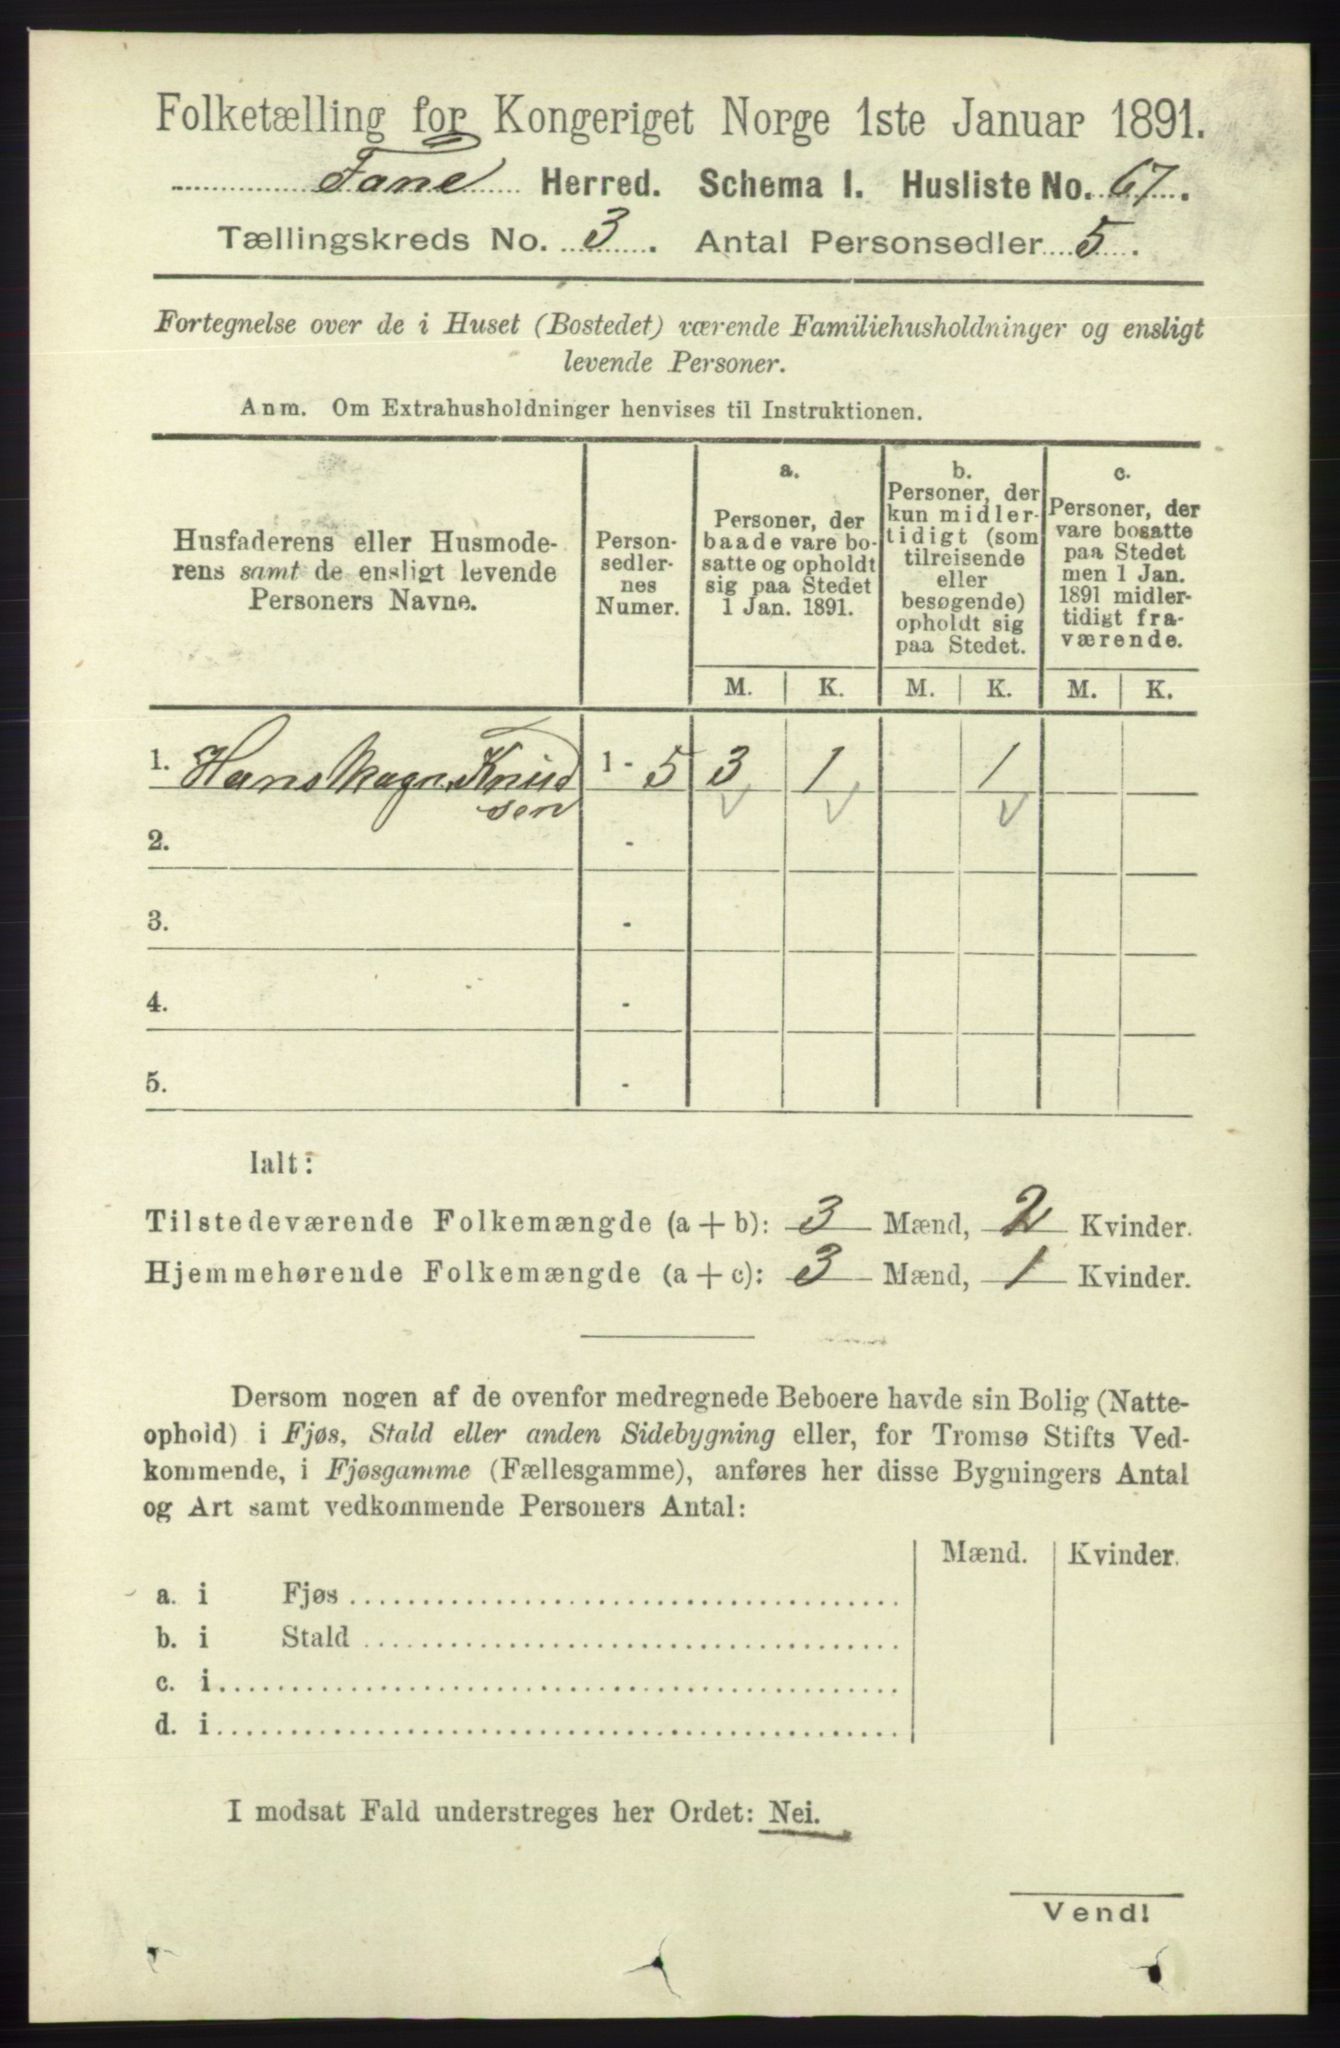 Folketælling for Kongeriget Norge 1ste Januar 1891.
Fane Herred. Schema I. Husliste No. 67.
Tællingskreds No. 3. Antal Personsedler 5.
Fortegnelse over de i Huset (Bostedet) værende Familiehusholdninger og ensligt
levende Personer.
Anm. Om Extrahusholdninger henvises til Instruktionen.
Husfaderens eller Husmode-
rens samt de ensligt levende
Personers Navne.
Person-
sedler-
nes
Numer.
a.
Personer, der
baade vare bo-
satte og opholdt
sig paa Stedet
1 Jan. 1891.
b.
Personer, der
kun midler-
tidigt (som
tilreisende
eller
besøgende)
opholdt sig
paa Stedet.
c.
Personer, der
vare bosatte
paa Stedet
men 1 Jan.
1891 midler-
tidigt fra-
værende.
M. K. M. K. M. K.
1. Hans Magn. Knud 1 - 5 3 1 1
sen
2. -
3. -
4. -
5. -
Ialt:
Tilstedeværende Folkemængde (a + b): 3 Mænd, 2 Kvinder.
Hjemmehørende Folkemængde (a + c): 3 Mænd, 1 Kvinder.
Dersom nogen af de ovenfor medregnede Beboere havde sin Bolig (Natte-
ophold) i Fjøs, Stald eller anden Sidebygning eller, for Tromsø Stifts Ved-
kommende, i Fjøsgamme (Fællesgamme), anføres her disse Bygningers Antal
og Art samt vedkommende Personers Antal:
Mænd. Kvinder.
a. i Fjøs
b. i Stald
c. i
d. i
I modsat Fald understreges her Ordet: Nei.
Vend!